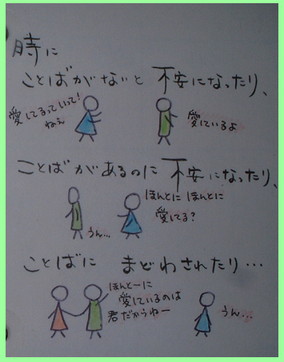 時に
ことばがないと 不安になったり、
愛してるっていって!
ねぇ
愛しているよ
ことばがあるのに 不安になったり、
ほんとに ほんとに
愛してる?
うん…
ことばに まどわされたり…
ほんとーに
愛しているのは
君だからねー
うん…